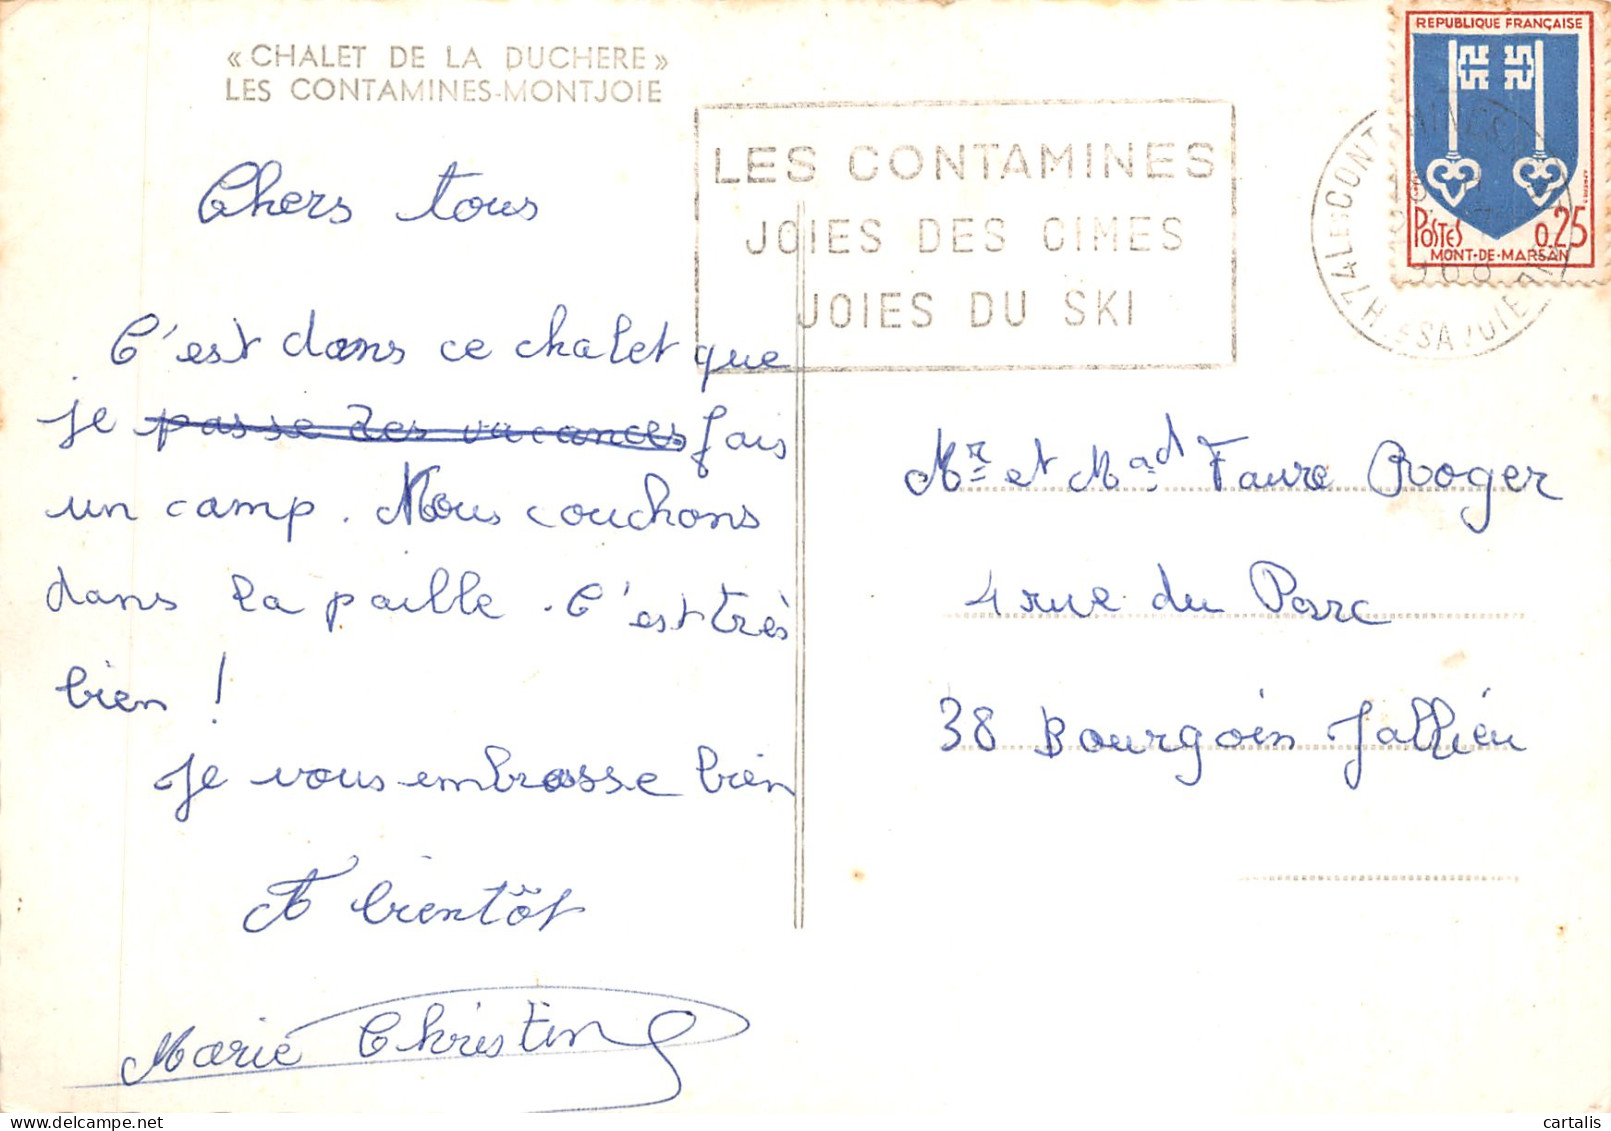 « CHALET DE LA DUCHERE »
LES CONTAMINES-MONTJOIE
Chers tous
C'est dans ce chalet que
je passe des vacances fais
un camp. Nous couchons
dans la paille. C'est très
bien !
Je vous embrasse bien
A bientôt
Marie Christine
LES CONTAMINES
JOIES DES CIMES
JOIES DU SKI
REPUBLIQUE FRANÇAISE
POSTES 0.25
MONT-DE-MARSAN
Mr et Mad Faure Roger
4 rue du Parc
38 Bourgoin Jallieu
cartalis